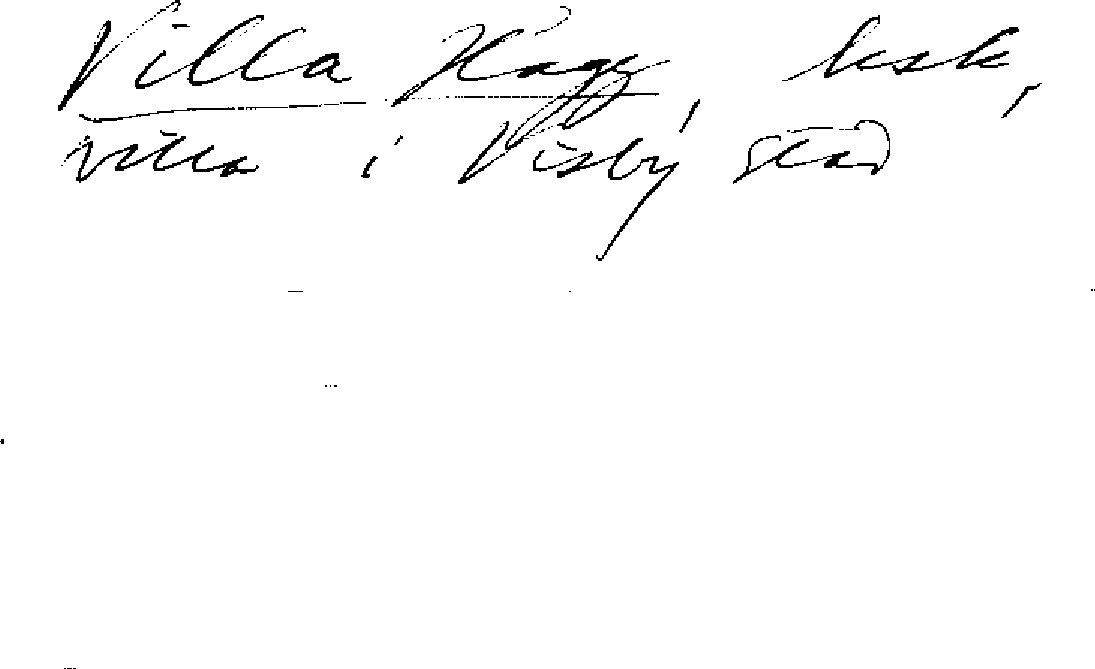 Villa Hägg, kslk,
villa i Visby stad